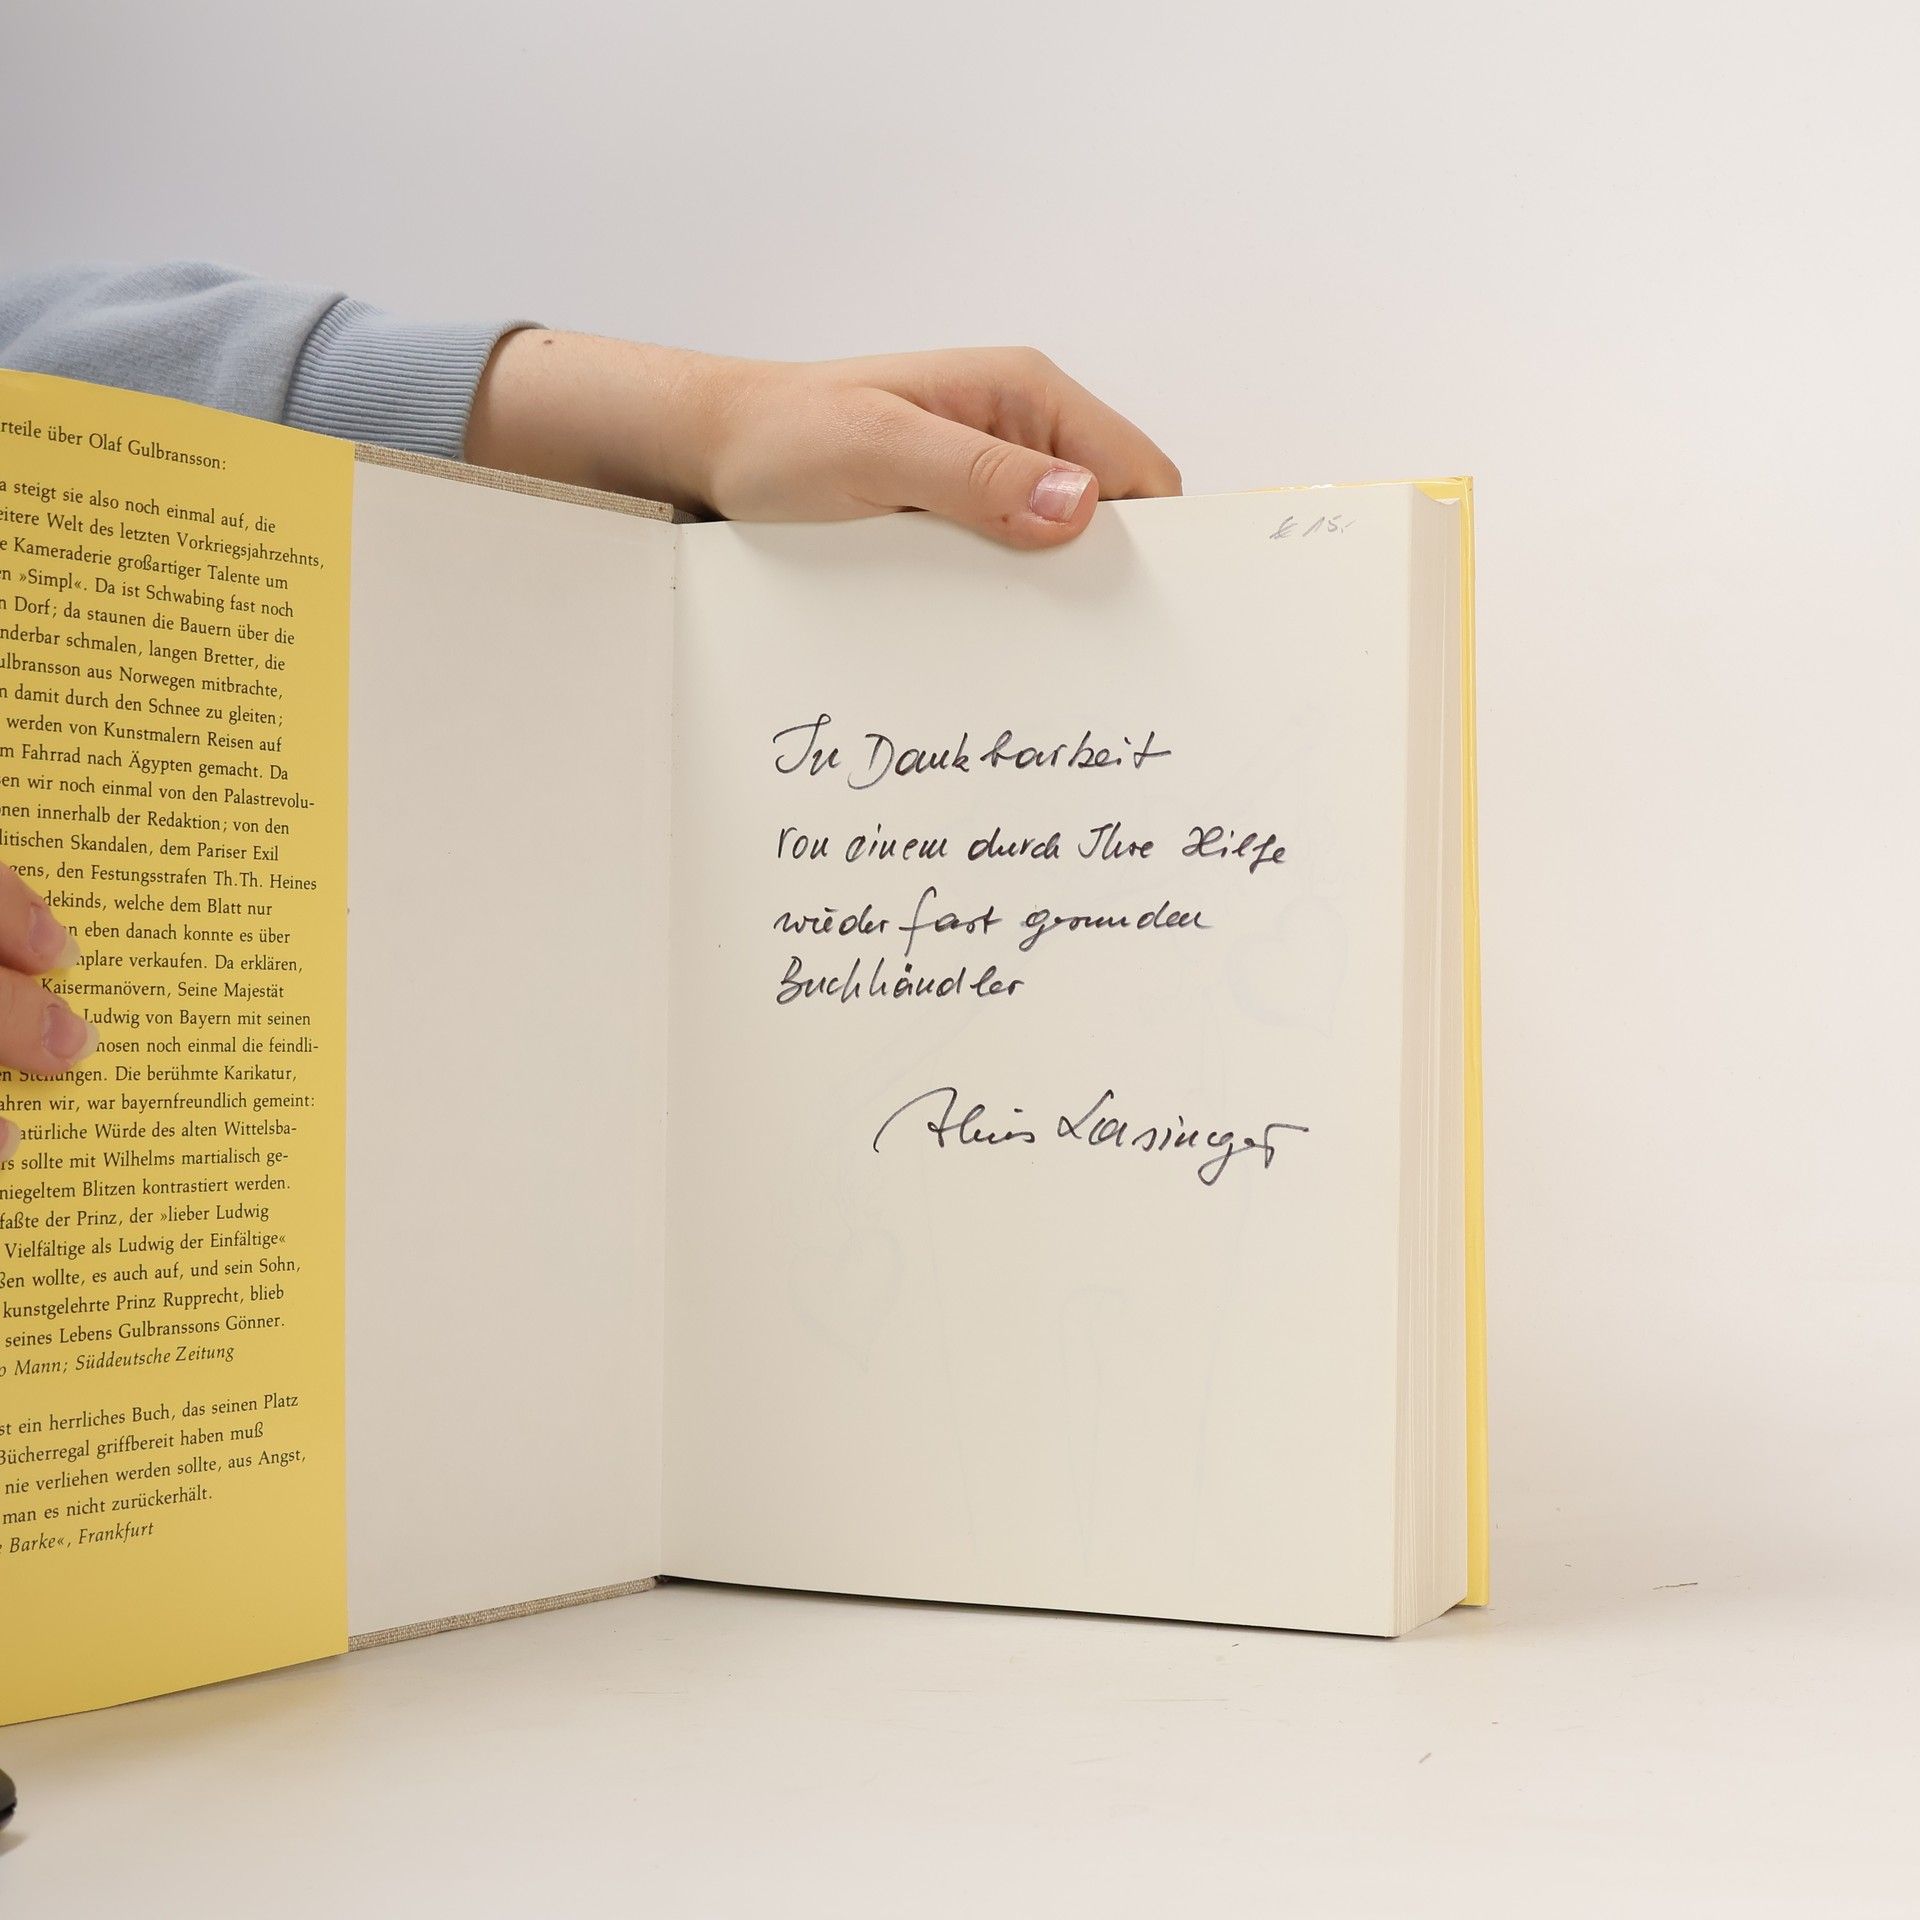 rteile über Olaf Gulbransson:
a steigt sie also noch einmal auf, die
eitere Welt des letzten Vorkriegsjahrzehnts,
e Kameraderie großartiger Talente um
en »Simpl«. Da ist Schwabing fast noch
n Dorf; da staunen die Bauern über die
nderbar schmalen, langen Bretter, die
ulbransson aus Norwegen mitbrachte,
m damit durch den Schnee zu gleiten;
werden von Kunstmalern Reisen auf
m Fahrrad nach Ägypten gemacht. Da
sen wir noch einmal von den Palastrevolu-
onen innerhalb der Redaktion; von den
litischen Skandalen, dem Pariser Exil
gens, den Festungsstrafen Th.Th. Heines
dekinds, welche dem Blatt nur
n eben danach konnte es über
mplare verkaufen. Da erklären,
Kaisermanövern, Seine Majestät
Ludwig von Bayern mit seinen
hosen noch einmal die feindli-
en Stellungen. Die berühmte Karikatur,
ahren wir, war bayernfreundlich gemeint:
atürliche Würde des alten Wittelsba-
rs sollte mit Wilhelms martialisch ge-
niegeltem Blitzen kontrastiert werden.
faßte der Prinz, der »lieber Ludwig
Vielfältige als Ludwig der Einfältige«
ßen wollte, es auch auf, und sein Sohn,
kunstgelehrte Prinz Rupprecht, blieb
seines Lebens Gulbranssons Gönner.
o Mann; Süddeutsche Zeitung
st ein herrliches Buch, das seinen Platz
Bücherregal griffbereit haben muß
nie verliehen werden sollte, aus Angst,
man es nicht zurückerhält.
e Barke«, Frankfurt
15.-
In Dankbarkeit
von einem durch Ihre Hilfe
wieder fast gesunden
Buchhändler
Lasinger